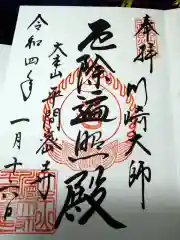 奉拝
川崎大師
厄除遍照殿
大本山平間寺
令和四年一月十六日